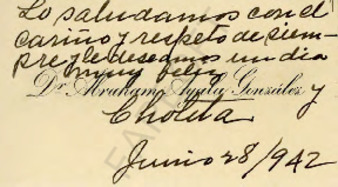 Lo saludamos con el
cariño y respeto de siem-
pre y le deseamos un dia
muy feliz
Dr. Abraham Ayala González y
Cholita
Junio 28/942